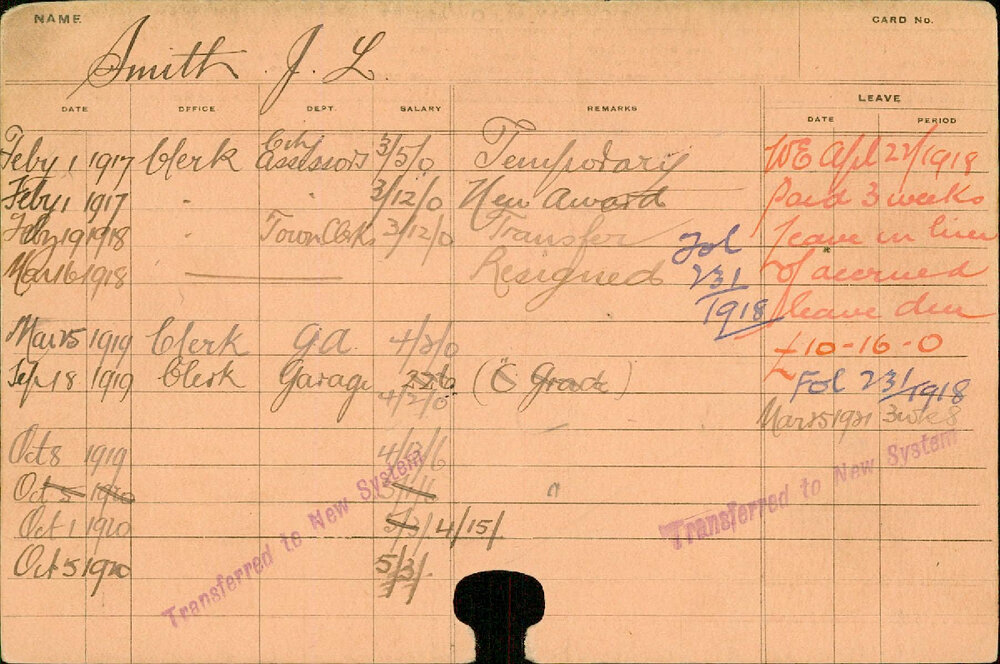 NAME CARD No.
Smith J. L.
DATE OFFICE DEPT. SALARY REMARKS LEAVE
DATE PERIOD
Feby 1 1917 Clerk City Assessors 3/5/0 Temporary WE Apl 27/1918
Feby 1 1917 " " 3/12/0 New Award Paid 3 weeks
Feby 19 1918 " Town Clerks 3/12/0 Transfer leave in lieu
Mar 16 1918 Resigned Fol 231/1918 of accrued
leave due
Mar 25 1919 Clerk G.A. 4/2/0 £10-16-0
Sep 18 1919 Clerk Garage 4/2/0 (C Grade) Fol 231/1918
Mar 25 1921 3 wks
Oct 8 1919 4/13/6
Oct 5 1920 "
Oct 1 1920 4/15/
Oct 5 1920 5/3/-
Transferred to New System
Transferred to New System